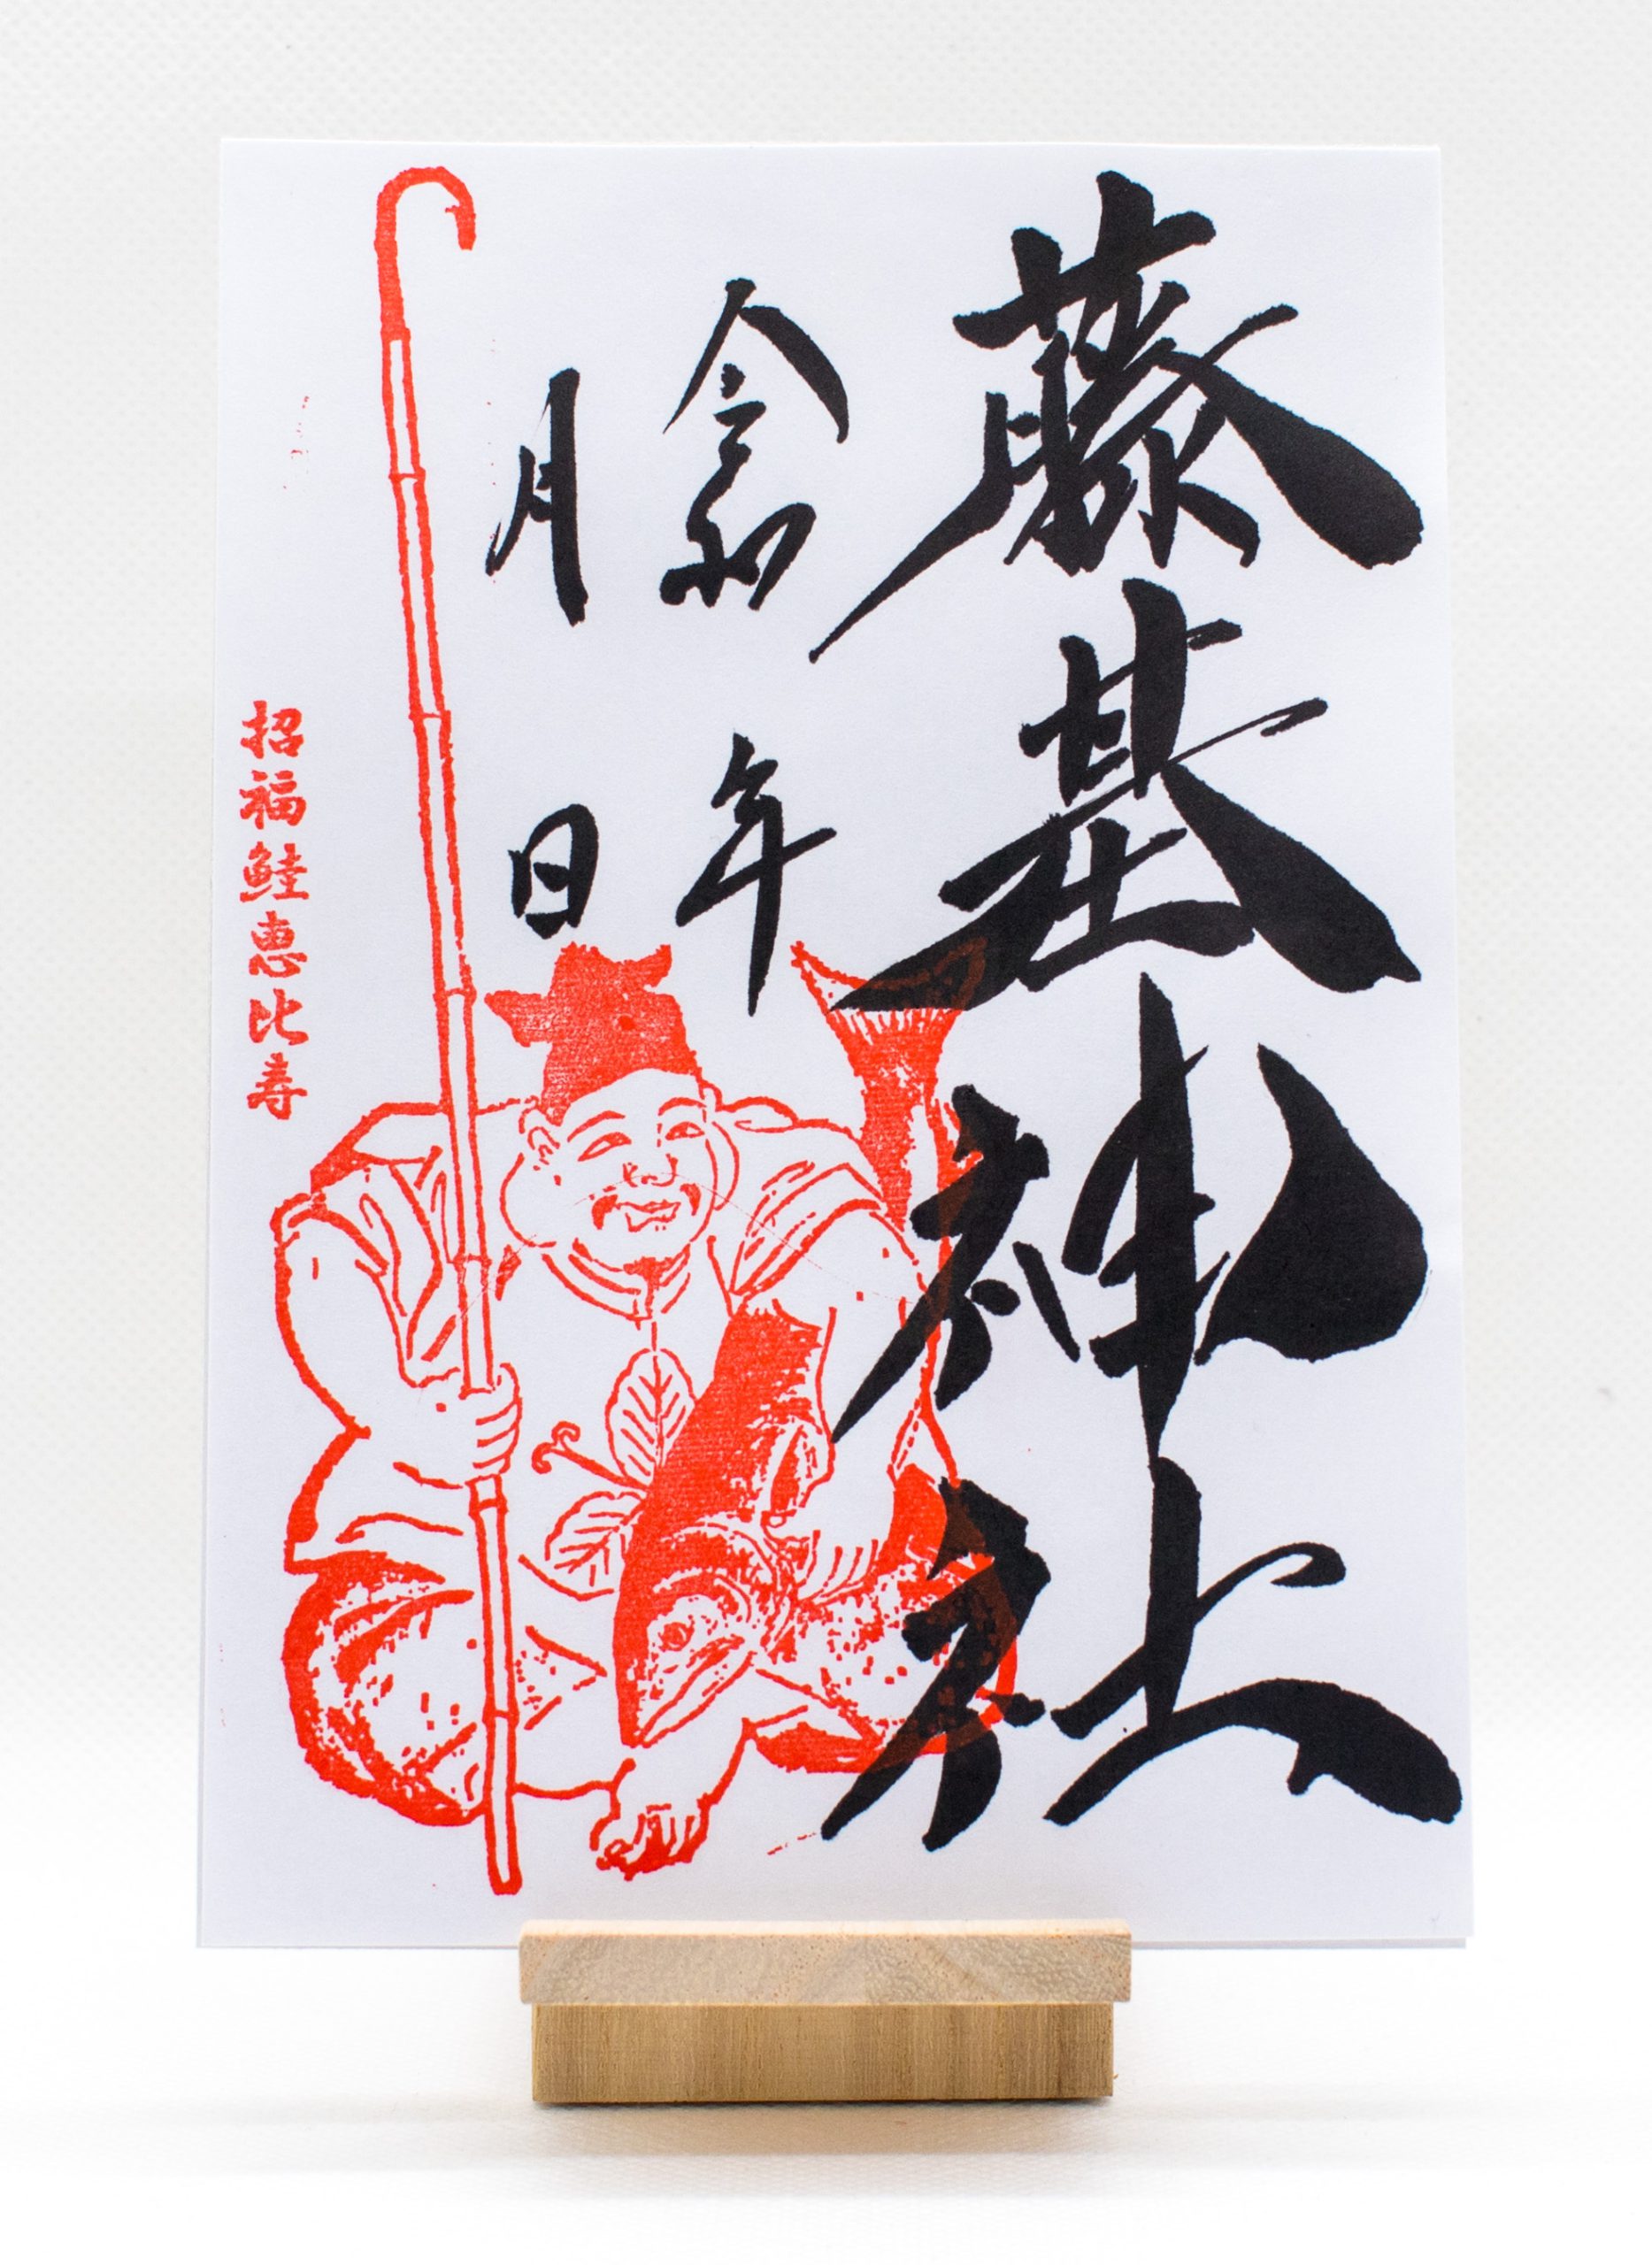 藤基神社
令和 年
月 日
招福鮭恵比寿